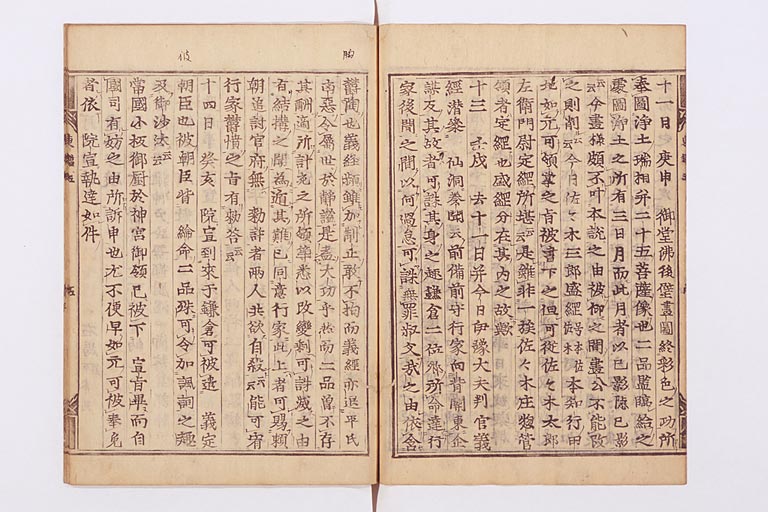 十一日 庚申 御堂佛後壁畫圖終彩色之功所
奉圖淨土瑞相并二十五菩薩像也二品監臨給之
處圖淨土之所有三日月而此月者以已影陸已影
云云今畫様頗不叶本説之由被仰之間畫公不能改
之則削云云今日佐々木三郎盛經 本知行田
地如元可領掌之旨被書下之但可從佐々木太郎
左衛門尉定經所堪云云是雖非一族佐々木庄惣管
領者定經也盛經分在其内之故歟
十三日 壬戌 去十一日并今日伊豫大夫判官義
經潜参 仙洞奏聞云前備前守行家向背關東企
謀反其故者可誅其身之趣鎌倉二位卿所命達行
家後聞之間以何過怠可誅無罪叔父哉之由依含
欝陶也義經頻雖加制止敢不拘而義經亦退平氏
凶惡令屬世於静謐是盍大功乎然而二品曽不存
其酬適所計宛之所領等悉以改變剩可誅滅之由
有結構之聞為遁其難已同意行家此上者可賜頼
朝追討官府無 勅許者兩人共欲自殺云云能可宥
行家欝憤之旨有勅答云云
十四日 癸亥 院宣到來于鎌倉可被遣 義定
朝臣也被朝臣背綸命二品殊可令加諷詞之趣
及御沙汰云云
當國小杖御厨於神宮御領已被下 宣旨畢而自
國司有妨之由所訴申也尤不便早如元可被奉免
者依 院宣執達如件